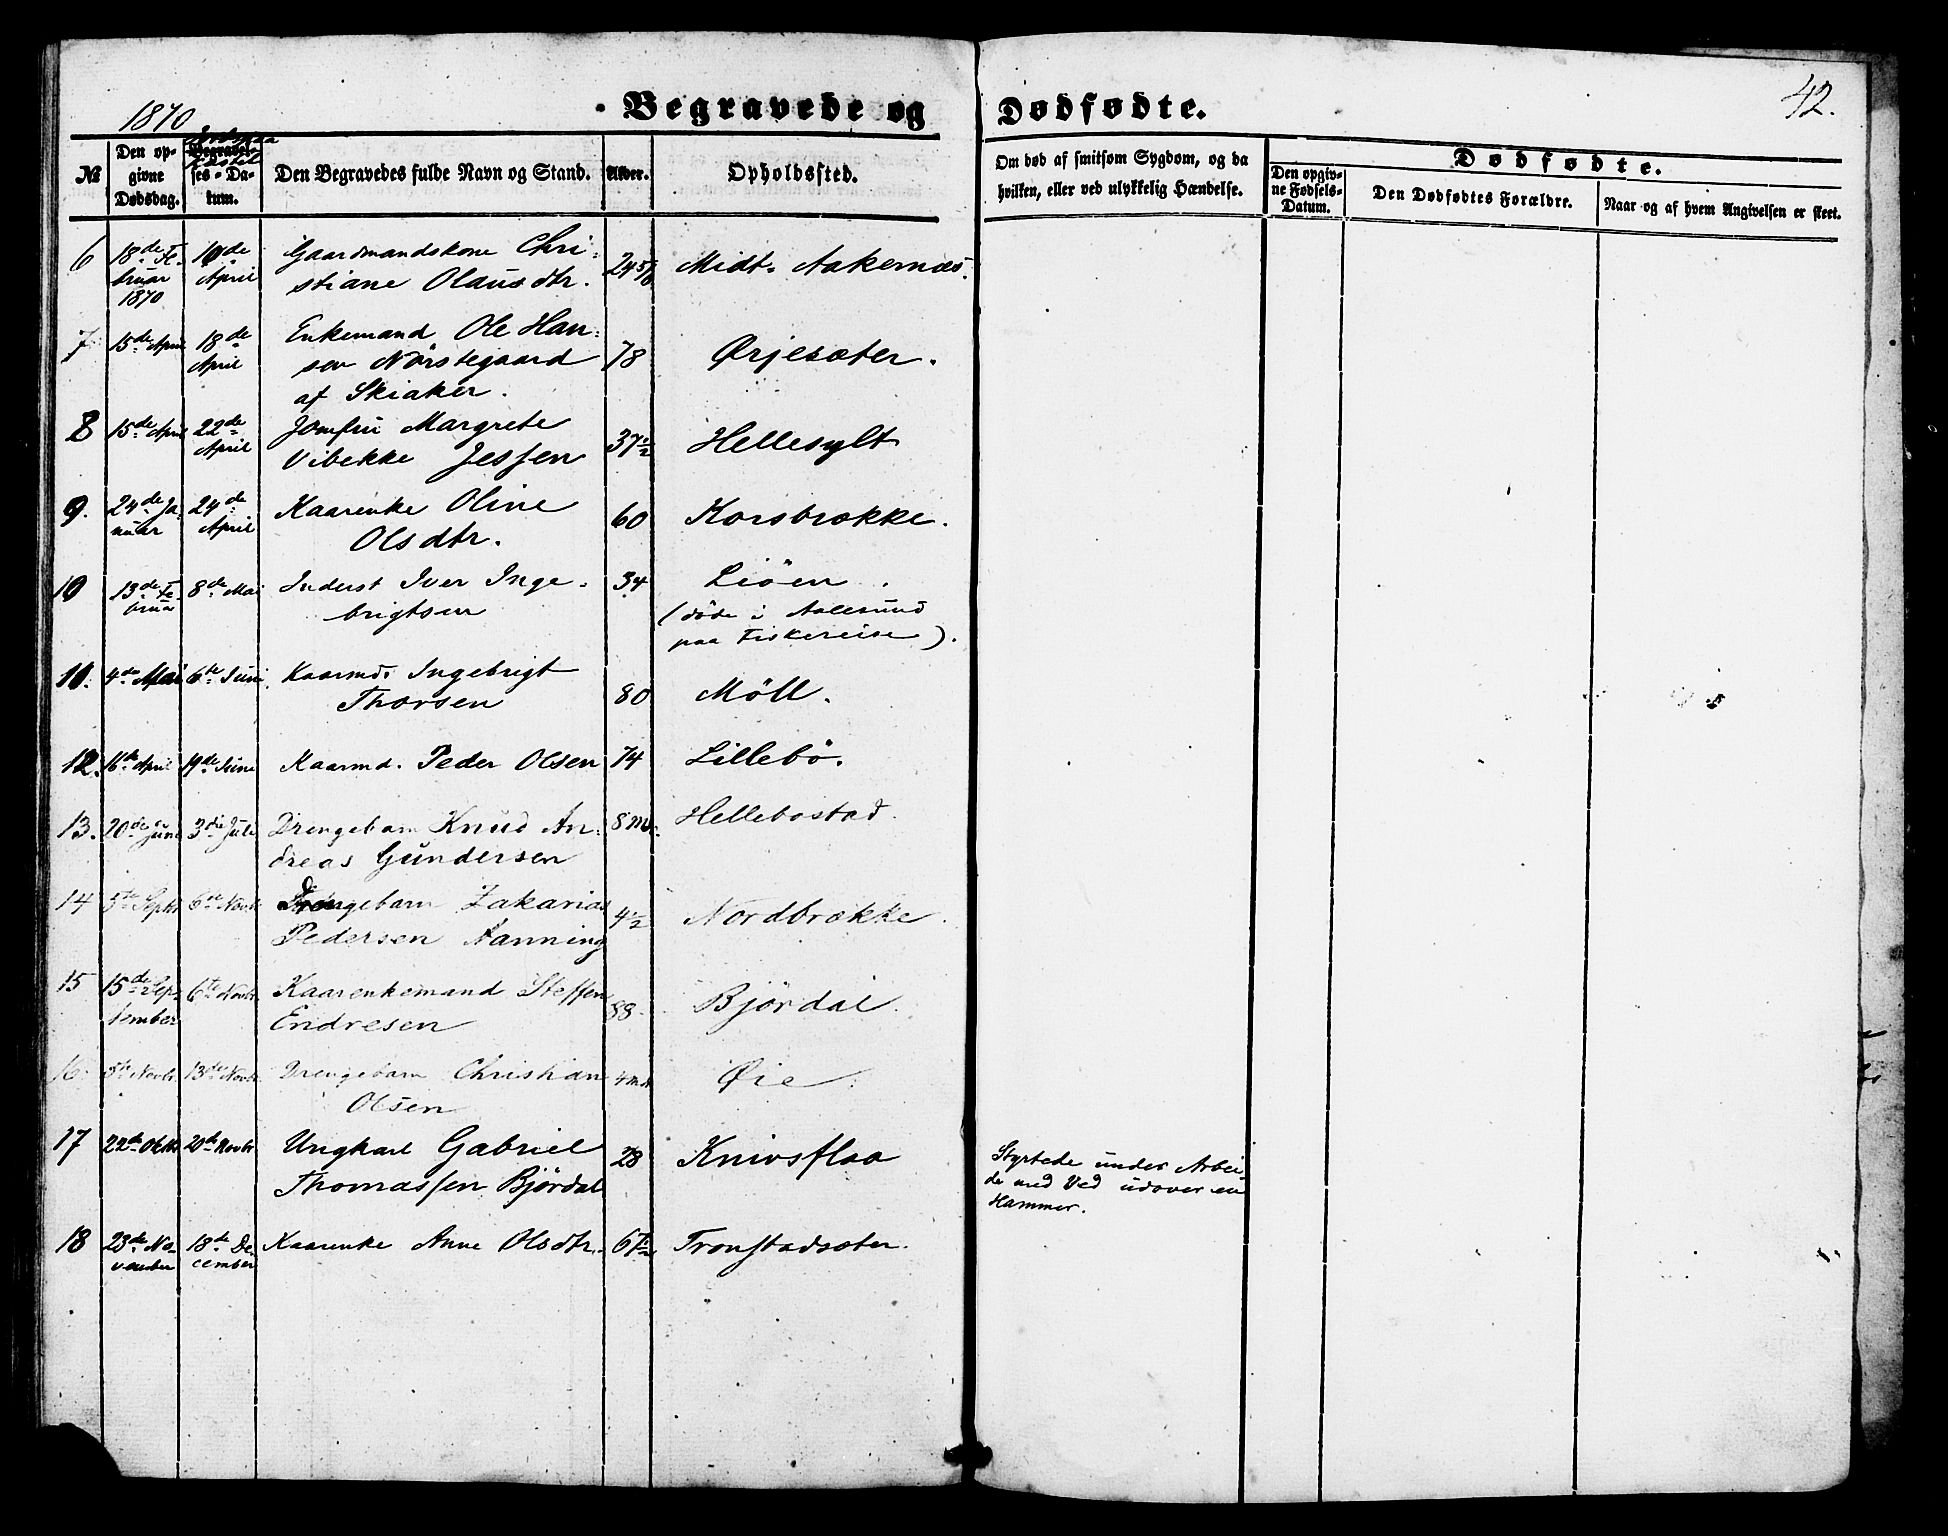 1870
Begravede og Dødfødte.
42.
№
Den opgivne Dødsdag.
Begravelses-Datum.
Den Begravedes fulde Navn og Stand.
Alder.
Opholdssted.
Om død af smitsom Sygdom, og da hvilken, eller ved ulykkelig Hændelse.
Dødfødte.
Den opgivne Fødsels-Datum.
Den Dødfødtes Forældre.
Naar og af hvem Angivelsen er skeet.
6 18de Fe- 10de Gaardmandskone Chri- 24 5/6 Midt. Aakernæs.
bruar April stiane Olausdtr.
1870
7 15de April 18de Enkemand Ole Han- 78 Ørjesæter.
April sen Nörstegaard
af Skiaker.
8 15de April 22de Jomfru Margrete 37½ Hellesylt
April Vibekke Jessen
9. 24de Ja- 24de Kaarenke Oline 60 Korsbrække.
nuar April Olsdtr.
10 13de Fe- 8de Mai Inderst Iver Inge- 34 Liöen.
bruar brigtsen (döde i Aalesund
paa Fiskereise).
11. 4de Mai 6te Juni Kaarmd. Ingebrigt 80 Möll.
Thorsen
12. 16de April 19de Juni Kaarmd. Peder Olsen 74 Lillebö.
13. 20de Juni 3die Juli Drengebarn Knud An- 8 M. Hellebostad.
dreas Gundersen
14 5te Septbr 6te Novbr Drengebarn Zakarias 4½ Nordbrække.
Pedersen Nanning
15 15de Sep- 6te Novbr. Kaarenkemand Steffen 88. Björdal.
tember Endresen
16. 5te Novbr. 13de Novbr. Drengebarn Christian 4 md. Øie.
Olsen
17 22de Oktbr 20de Novbr Ungkarl Gabriel 28 Knivsflaa Styrtede under Arbei-
Thomassen Björdal de med Ved udover en
Hammer.
18 23de No- 18de De- Kaarenke Anne Olsdtr. 67½ Tronstadsæter.
vember cember